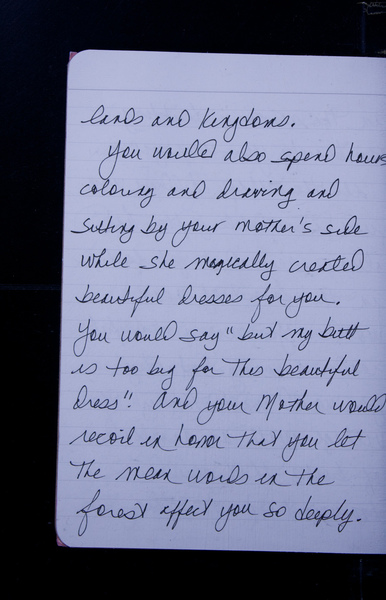 lands and kingdoms.
You would also spend hours
coloring and drawing and
sitting by your mother's side
while she magically created
beautiful dresses for you.
You would say "but my butt
is too big for this beautiful
dress". And your Mother would
recoil in horror that you let
the mean words in the
forest affect you so deeply.